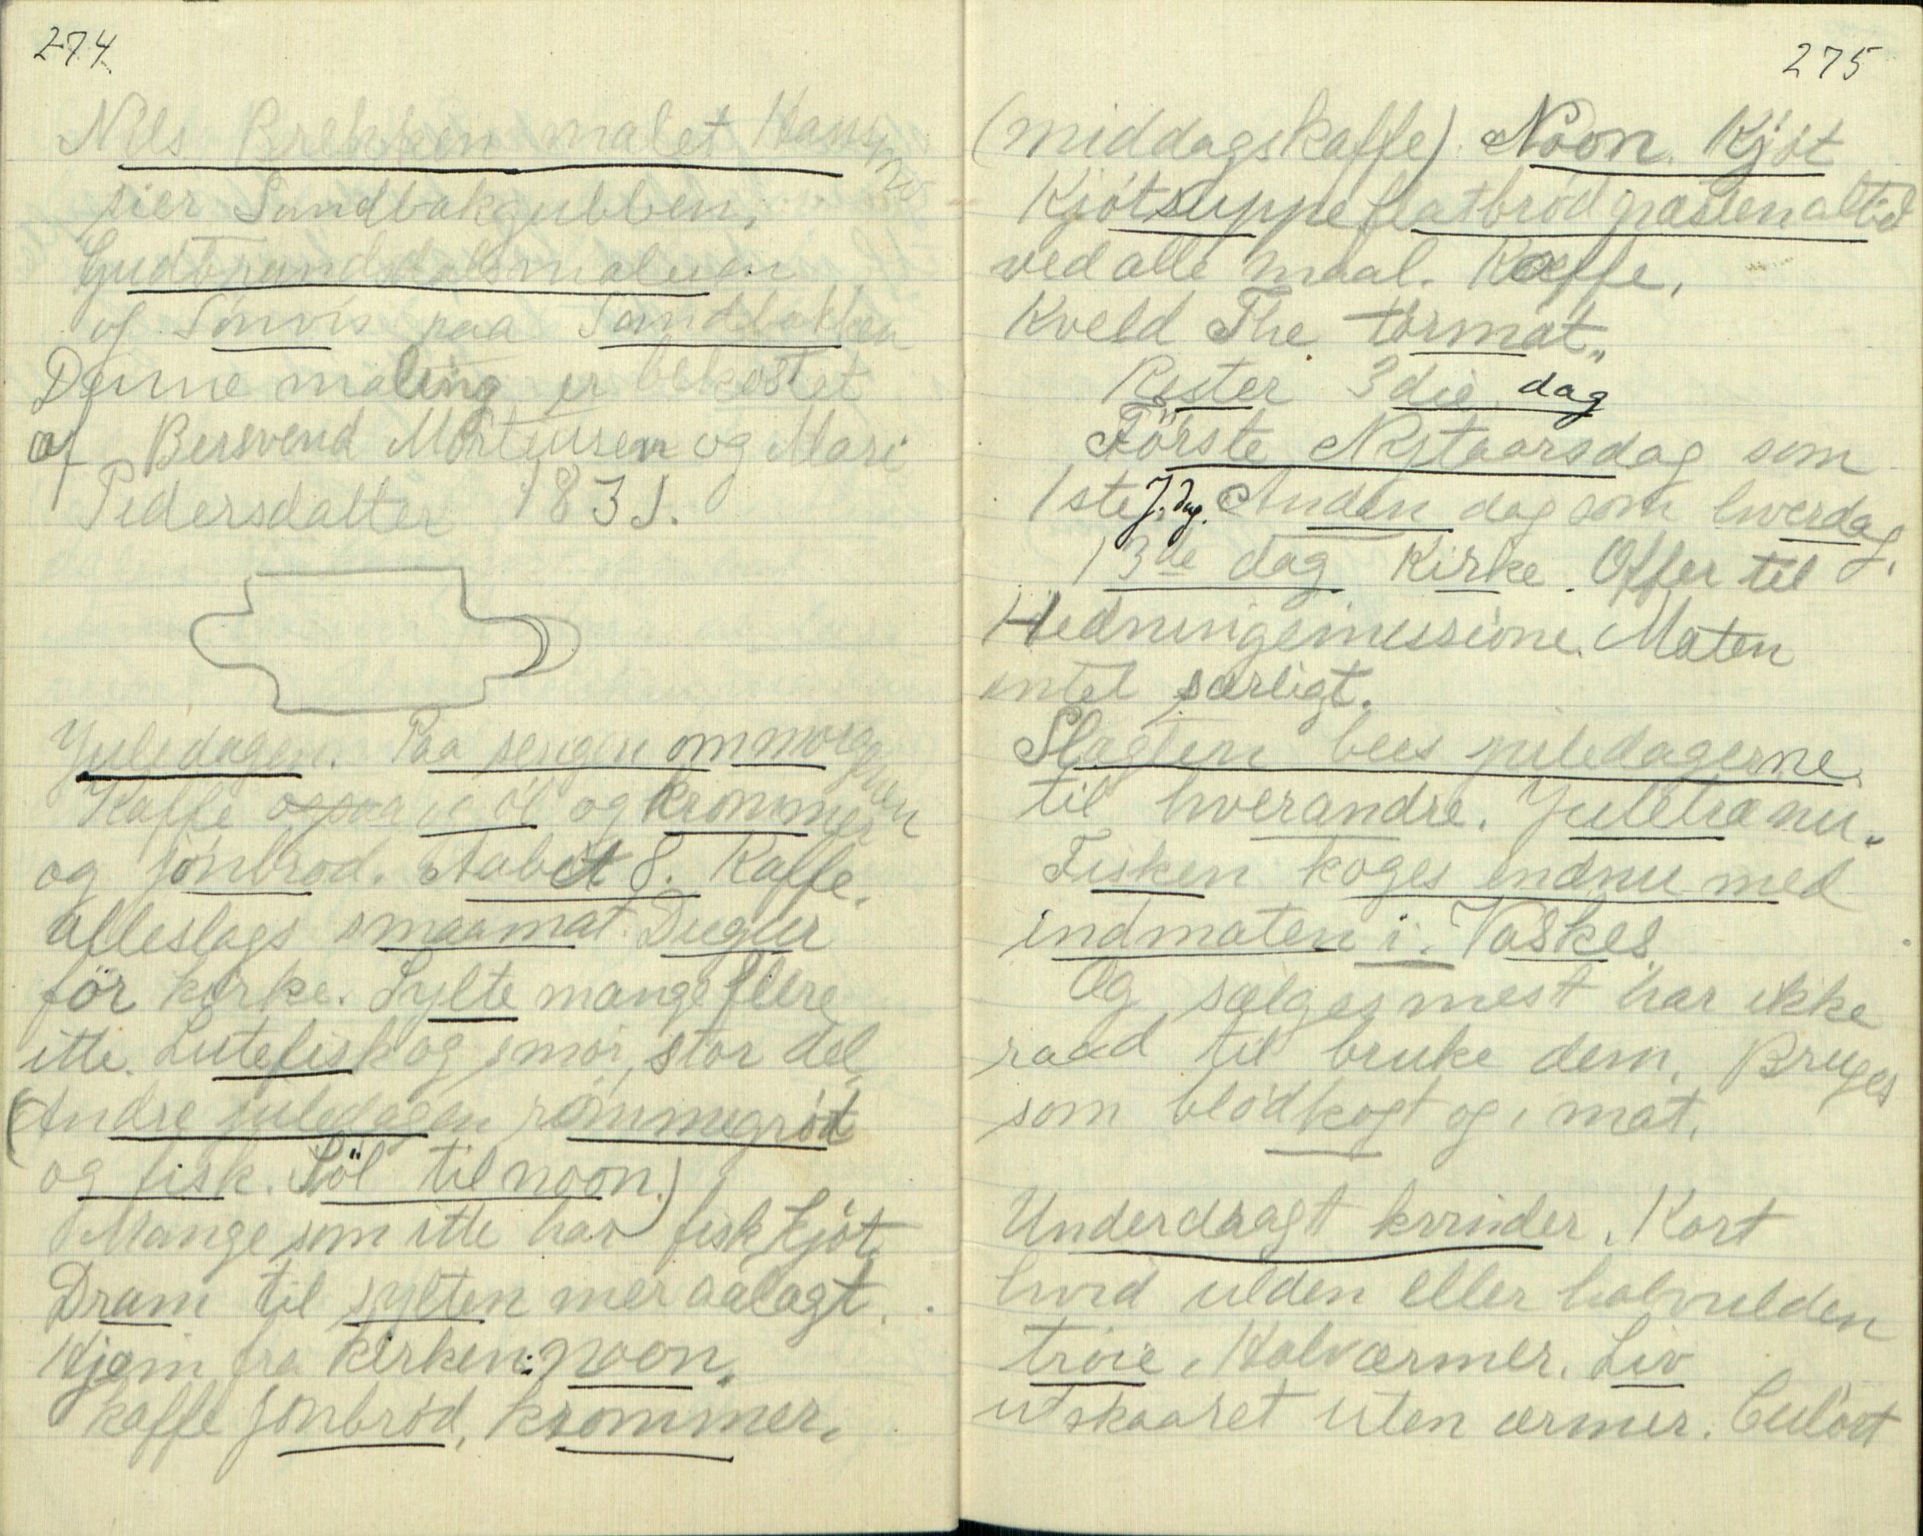 274
Nils Brekken malet Hans
sier Sandbakgubben,
Gudbrandsdalsmaleren
of Sönvis paa Sandbakken
Denne maling er bekostet
af Bersvend Mortensen og Mari
Pedersdatter 1831.
Juledagen. Paa sengen om morgenen
Kaffe ogsaa öl og krommer
og jönbröd. Aabit 8. Kaffe.
alleslags smaamat. Dugur
för kirke. Sylte mange flere
itte. Lutefisk og smör, stor del
(Andre juledagen römmegröt
og fisk. Söl til noon.)
Mange som itte har fisk kjöt
Dram til sylten mer aalagt.
Kjem fra kirken: noon.
kaffe jönbröd, krommer.
275
(middagskaffe). Noon. Kjöt
Kjötsuppe flatbröd næsten altid
ved alle maal. Kaffe.
Kveld The törmat„
Rester 3die dag
Förste Nytaarsdag som
1ste J. dag. Anden dag som hverdag.
13de dag Kirke. Offer til
Hedningemissione. Maten
intet særligt.
Slagten bees juledagerne
til hverandre. Juletræ nu.
Fisken koges endnu med
indmaten i. Vaskes.
Og sælges mest har ikke
raad til bruke dem. Bruges
som blödkogt og i mat.
Underdragt kvinder. Kort
hvid ulden eller halvulden
tröie, Halværmer. Liv
utskaaret uten ærmer. Culört